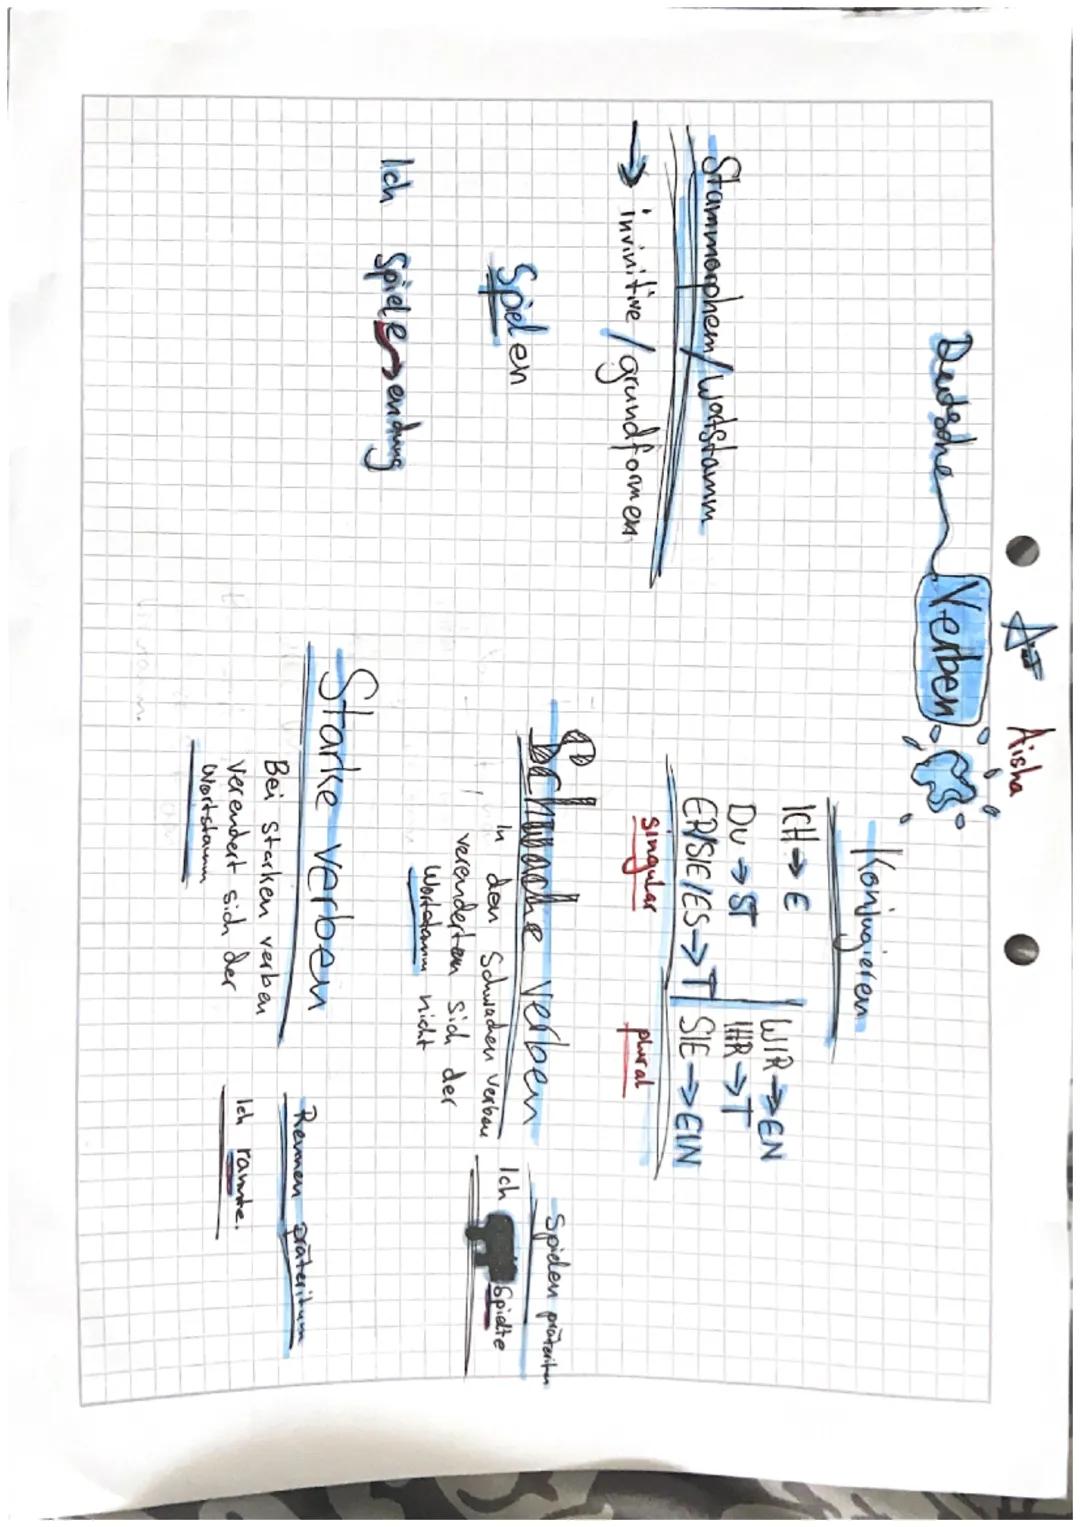 Aisha
Deutsche Verben
Stammmorphem/Wortstamm
→ invinitive/grundformen
Spielen
Ich Spiele → endung
Konjugieren
ICH → E
WIR → EN
DU → ST
IHR → T
ER/SIE/ES → T
SIE → EIN
singular
plural
Schwache verben
In den Schwachen verben
verendertem sich der
Wortstamm nicht
Spielen präteritum
Ich Spielte
Starke verben
Bei starken verben
verendert sich der
Wortstamm
Rennen präteritum
Ich rannte.